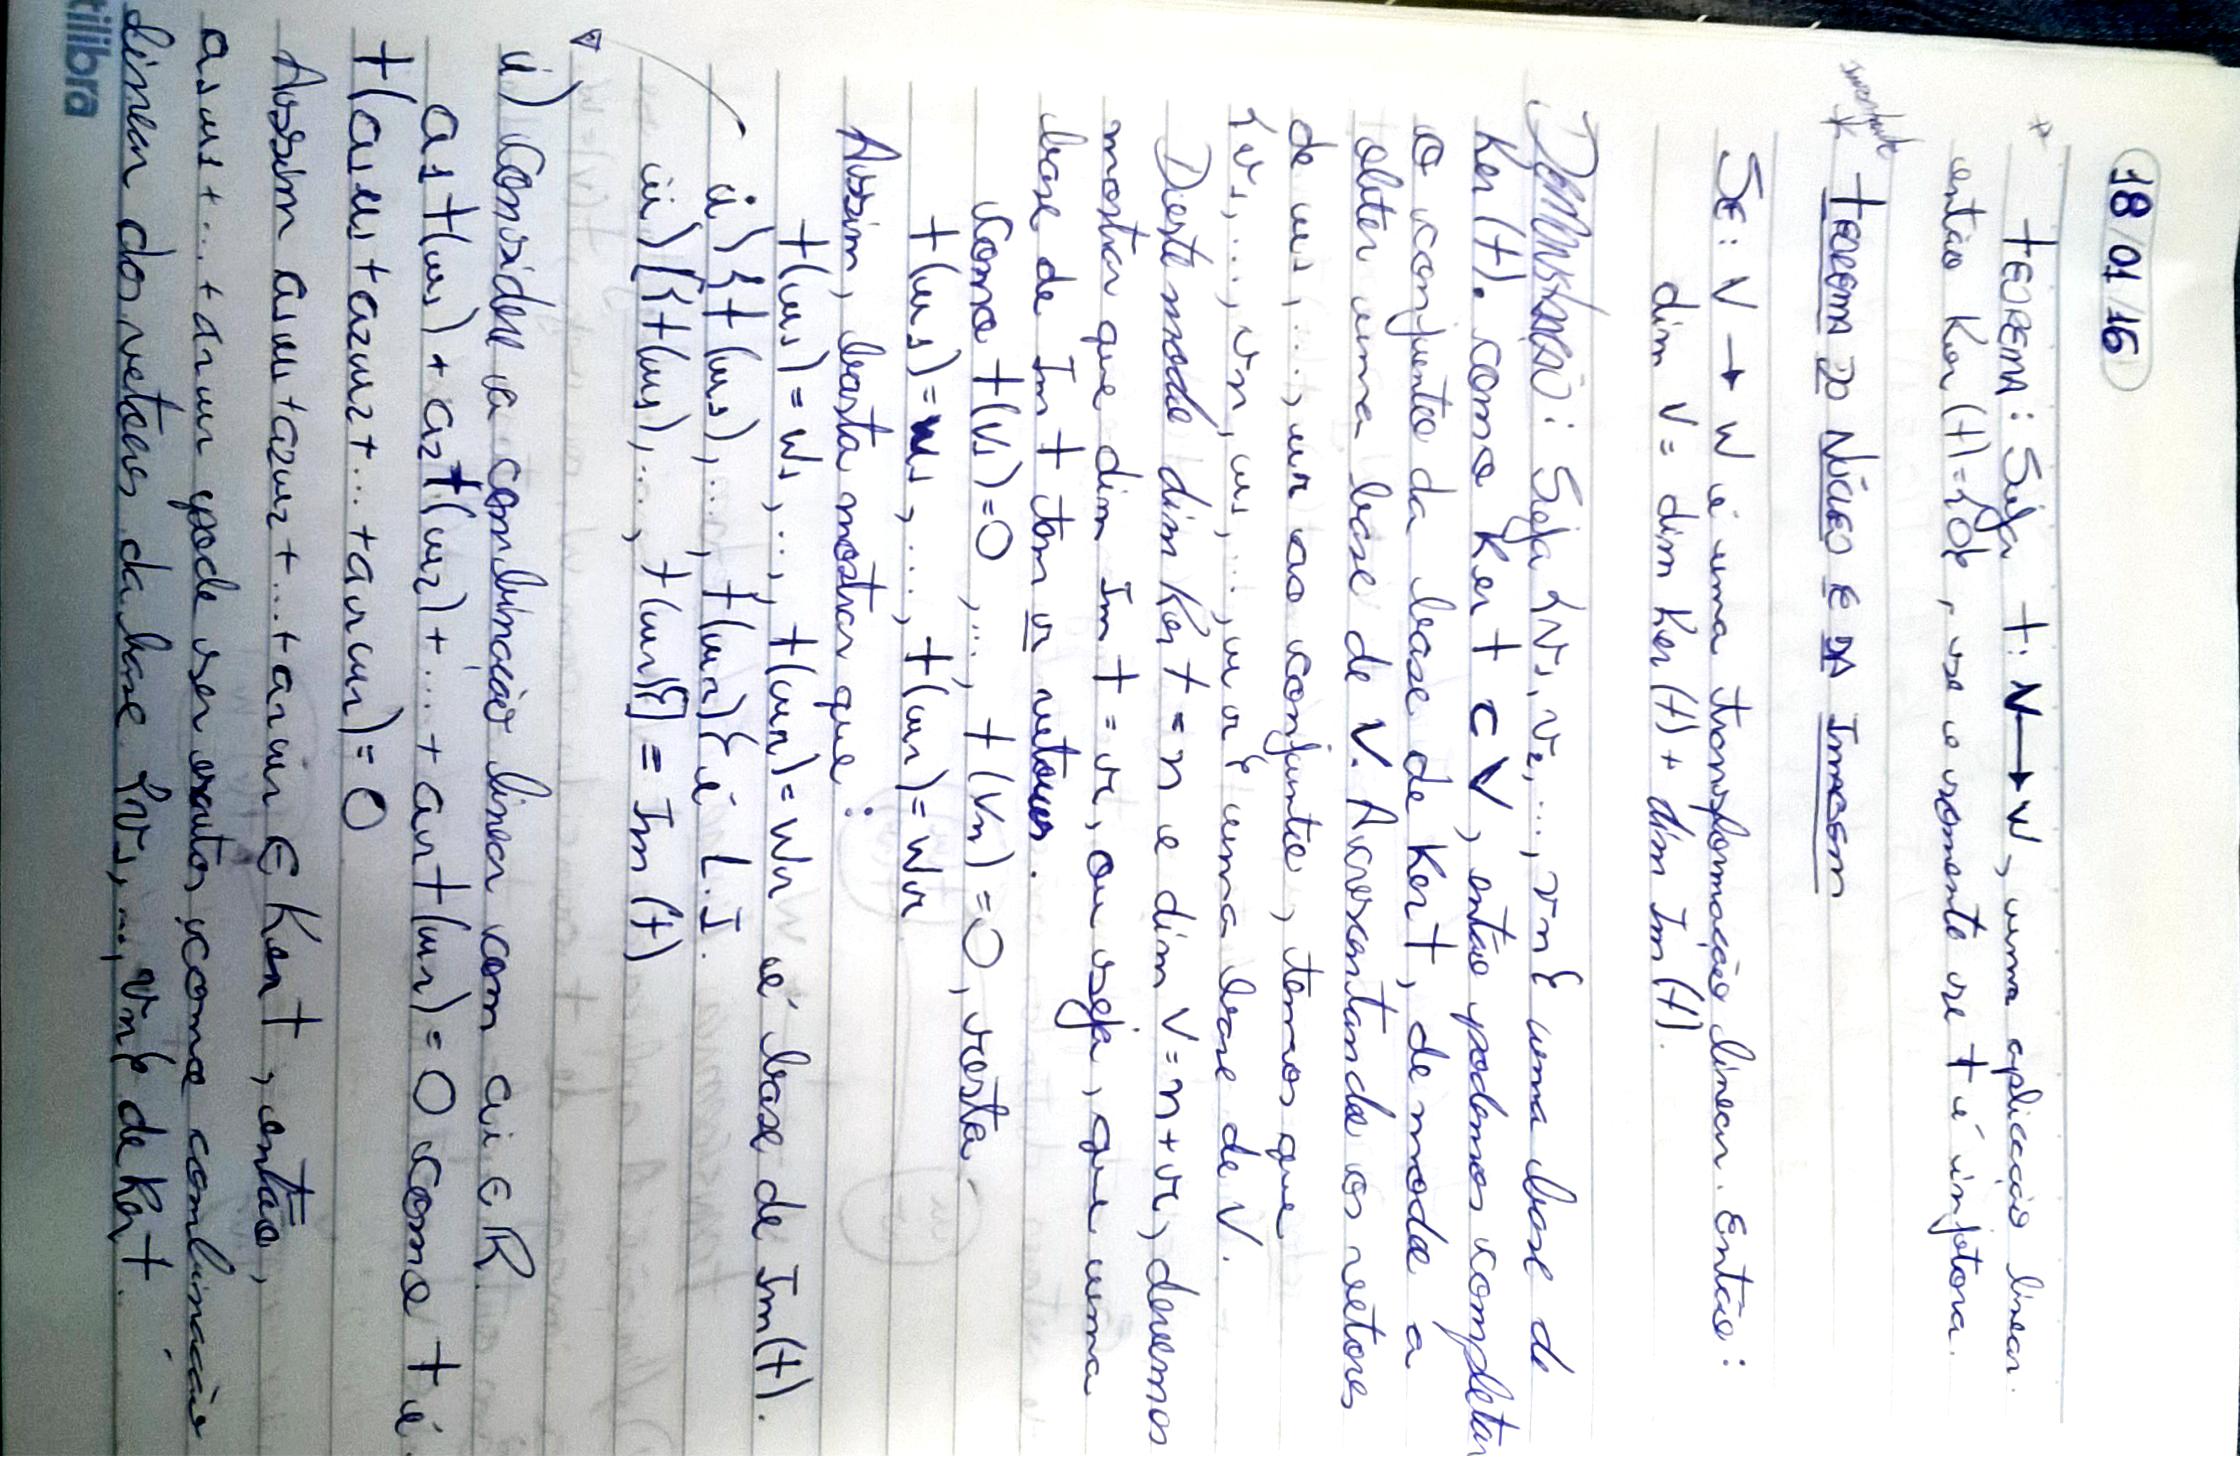 18/01/16
* TEOREMA: Seja T: V → W, uma aplicação linear.
então Ker (T)={0}, se e somente se T é injetora.
Importante
* TEOREMA DO NÚCLEO E DA IMAGEM
SE: V → W é uma transformação linear. Então:
dim V = dim Ker (T) + dim Im (T).
DEMONSTRAÇÃO: Seja {v1, v2, ..., vn} uma base de
Ker (T). como Ker T ⊂ V, então podemos completar
o conjunto da base de Ker T, de modo a
obter uma base de V. Acrescentando os vetores
de u1, ..., ur ao conjunto, temos que
{v1, ..., vn, u1, ..., ur} uma base de V.
Deste modo dim Ker T = n e dim V = n+r, devemos
mostrar que dim Im T = r, ou seja, que uma
base de Im T tem r vetores.
Como T(v1)=0, ..., T(vn)=0, resta
T(u1)=w1, ..., T(ur)=wr
Assim, basta mostrar que:
T(u1)=w1, ..., T(ur)=wr é base de Im(T).
i) {T(u1), ..., T(ur)} é L.I.
ii) [{T(u1), ..., T(ur)}] = Im (T)
i) Considere a combinação linear com ai ∈ R.
a1T(u1) + a2T(u2) + ... + arT(ur) = 0 como T é
T(a1u1+a2u2+...+arur)=0
Assim a1u1+a2u2+...+arur ∈ Ker T, então,
a1u1+...+arur pode ser escritos como combinação
linear dos vetores da base {v1, ..., vn} de Ker T.
tilibra